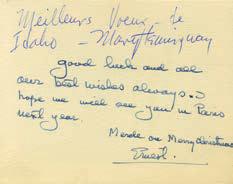 Meilleurs Voeux - de
Idaho - Mary Hemingway
good luck and all
our best wishes always.
hope we will see you in Paris
next year.
Merde on Merry christmas
Ernest.